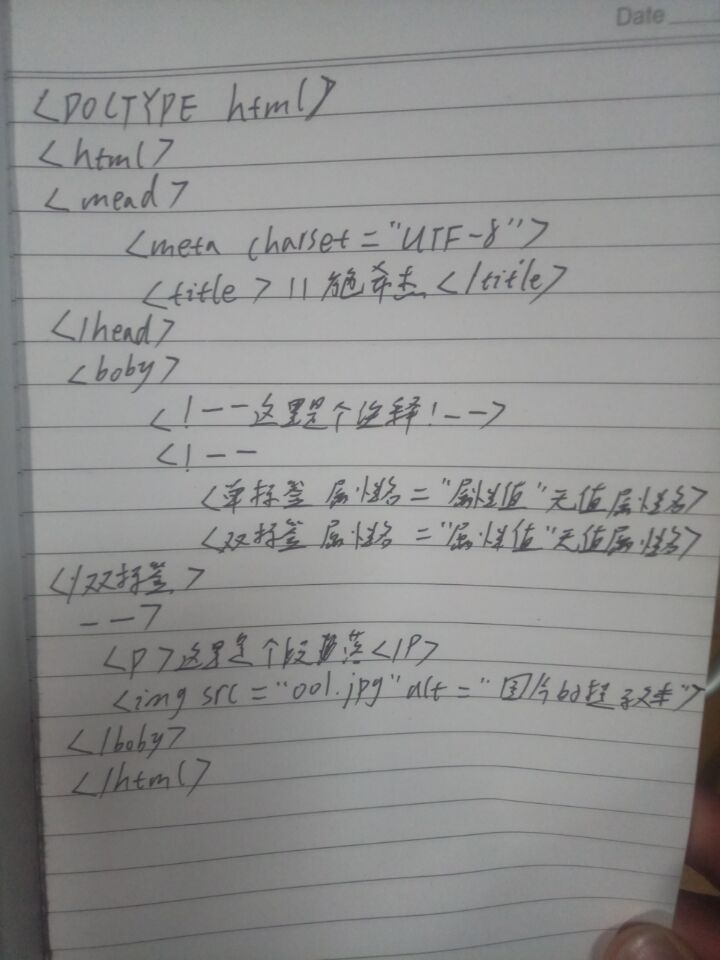 Date
<DOCTYPE html>
<html>
<mead>
<meta charset="UTF-8">
<title>11 施希杰</title>
</head>
<boby>
<!--这里是个注释!-->
<!--
<单标签 属性名="属性值"无值属性名>
<双标签 属性名="属性值"无值属性名>
</双标签>
-->
<p>这里是个段落</p>
<img src="001.jpg" alt="图片的替文本">
</boby>
</html>